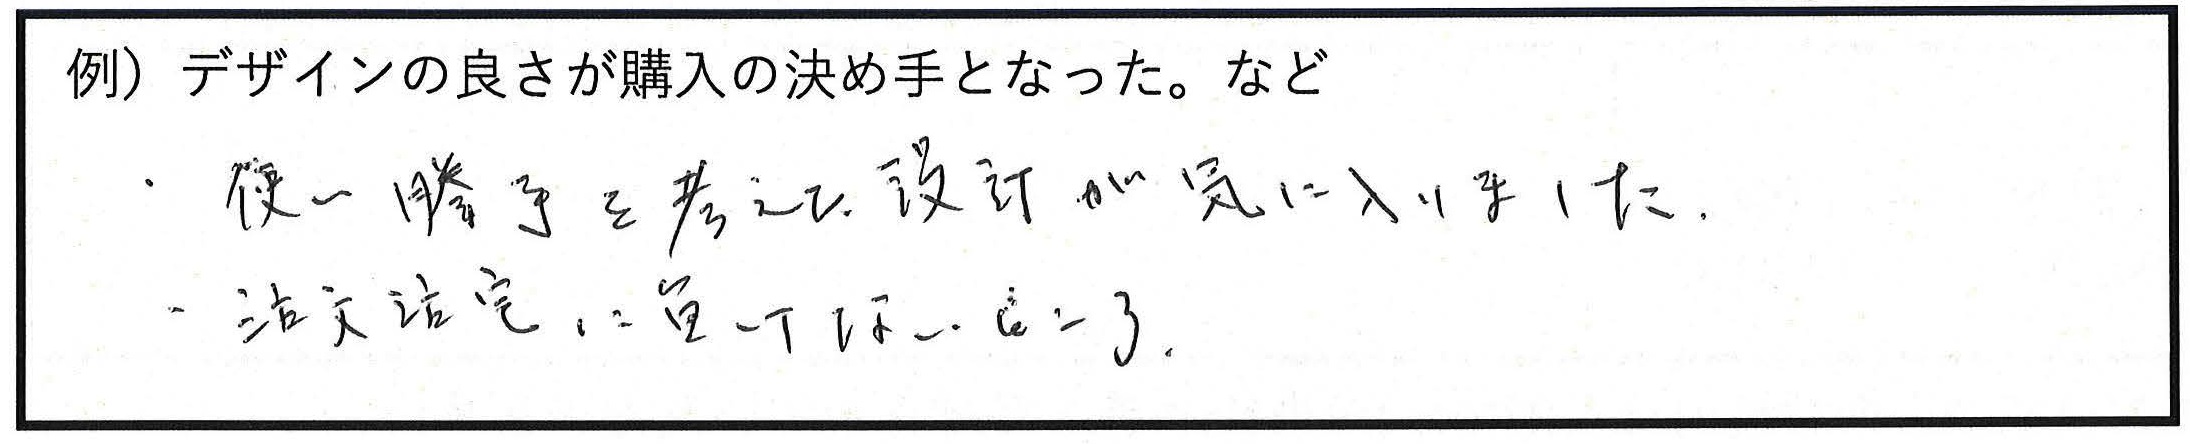 例）デザインの良さが購入の決め手となった。など
・使い勝手を考えた設計が気に入りました.
・注文住宅に負けてない ところ.